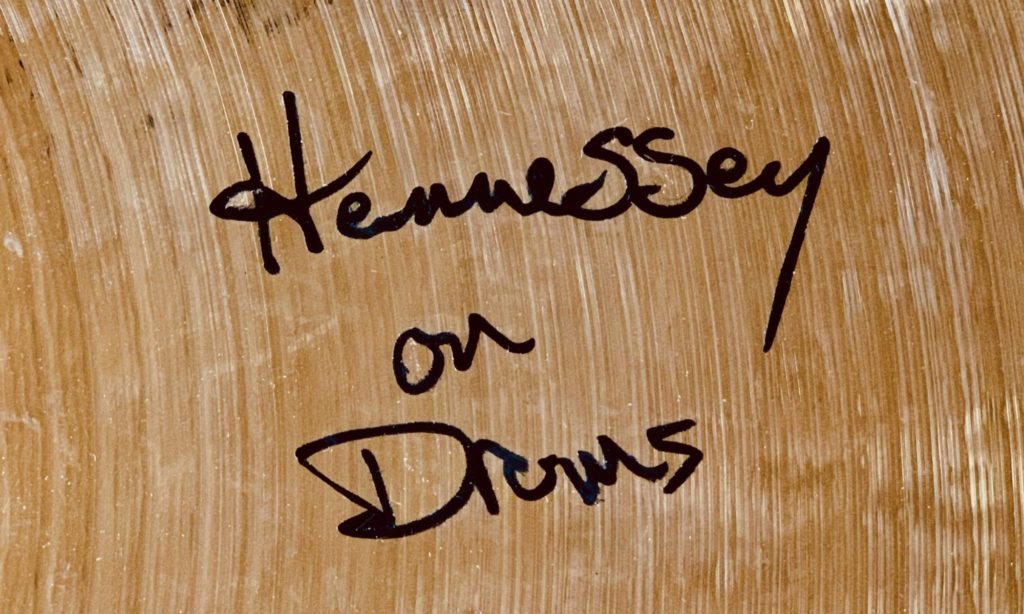 Hennessey
on
Drums